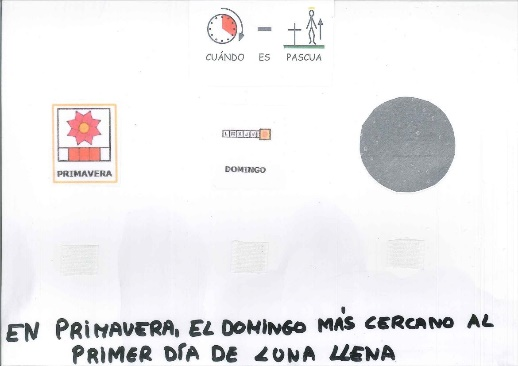 CUÁNDO ES PASCUA
PRIMAVERA
DOMINGO
EN PRIMAVERA, EL DOMINGO MÁS CERCANO AL
PRIMER DÍA DE LUNA LLENA